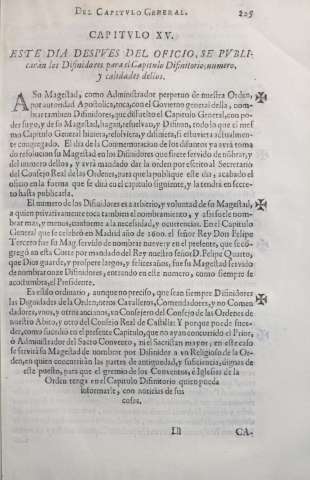 DEL CAPITVLO GENERAL. 225
CAPITVLO XV.
ESTE DIA DESPVES DEL OFICIO, SE PVBLI-
carán los Difinidores para el Capitulo Difinitorio, numero,
y calidades dellos.
A Su Magestad, como Administrador perpetuo de nuestra Orden,
por autoridad Apostolica, toca, con el Govierno general della, nom-
brar tambien Difinidores, que dissuelto el Capitulo General, con po-
der suyo, y de su Magestad, hagan, resuelvan, y Difinan, todo lo que el mes-
mo Capitulo General hiziera, resolviera, y difiniera, si estuviera actualmen-
te congregado. El dia de la Commemoracion de los difuntos ya avrá toma
do resolucion su Magestad en los Difinidores que fuere servido de nõbrar, y
del numero dellos, y avrá mandado dar la orden por escrito al Secretario
del Consejo Real de las Ordenes, para que la publique este dia, acabado el
oficio en la forma que se dirá en el capitulo siguiente, y la tendrá en secre-
to hasta publicarla.
El numero de los Difinidores es a arbitrio, y voluntad de su Magestad,
a quien privativamente toca tambien el nombramiento, y assi suele nom-
brar mas, y menos, conforme a la necessidad, y ocurrencias. En el Capitulo
General que se celebró en Madrid año de 1600. el señor Rey Don Felipe
Tercero fue su Mag. servido de nombrar nueve, y en el presente, que se co-
gregó en esta Corte por mandado del Rey nuestro señor D. Felipe Quarto,
que Dios guarde, y prospere largos, y felices años, fue su Magestad servido
de nombrar onze Difinidores, entrando en este numero, como siempre se
acostumbra, el Presidente.
Es estilo ordinario, aunque no preciso, que sean siempre Difinidores
las Dignidades de la Orden, otros Cavalleros, Comendadores, y no Comen
dadores, unos, y otros ancianos, un Consejero del Consejo de las Ordenes de
nuestro Abito, y otro del Consejo Real de Castilla: Y porque puede suce-
der, como sucedió en el presente Capitulo, que no ayan concurrido el Prior,
ò Administrador del Sacro Convento, ni el Sacristan mayor, en este caso
se servirá su Magestad de nombrar por Difinidor a un Religioso de la Or-
den, en quien concurrirán las partes de antiguedad, y suficiencia, dignas de
este puesto, para que el gremio de los Conventos, è Iglesias de la
Orden tenga en el Capitulo Difinitorio quien pueda
informarle, con noticias de sus
cosas.
Lll CA-